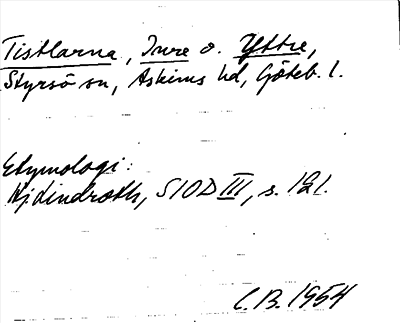 Tistlarna, Inre o. Yttre,
Styrsö sn, Askims hd, Göteb. l.
Etymologi:
Hj Lindroth, SIOD III, s. 121.
C.B. 1954